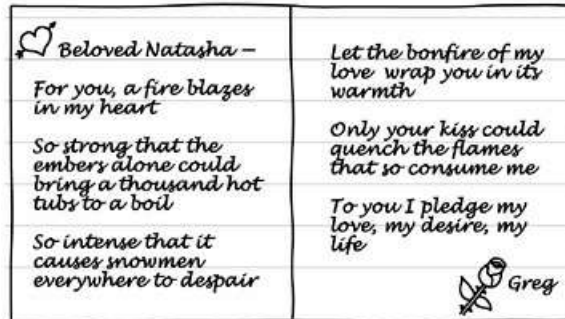 Beloved Natasha —
For you, a fire blazes
in my heart
So strong that the
embers alone could
bring a thousand hot
tubs to a boil
So intense that it
causes snowmen
everywhere to despair
Let the bonfire of my
love wrap you in its
warmth
Only your kiss could
quench the flames
that so consume me
To you I pledge my
love, my desire, my
life
Greg